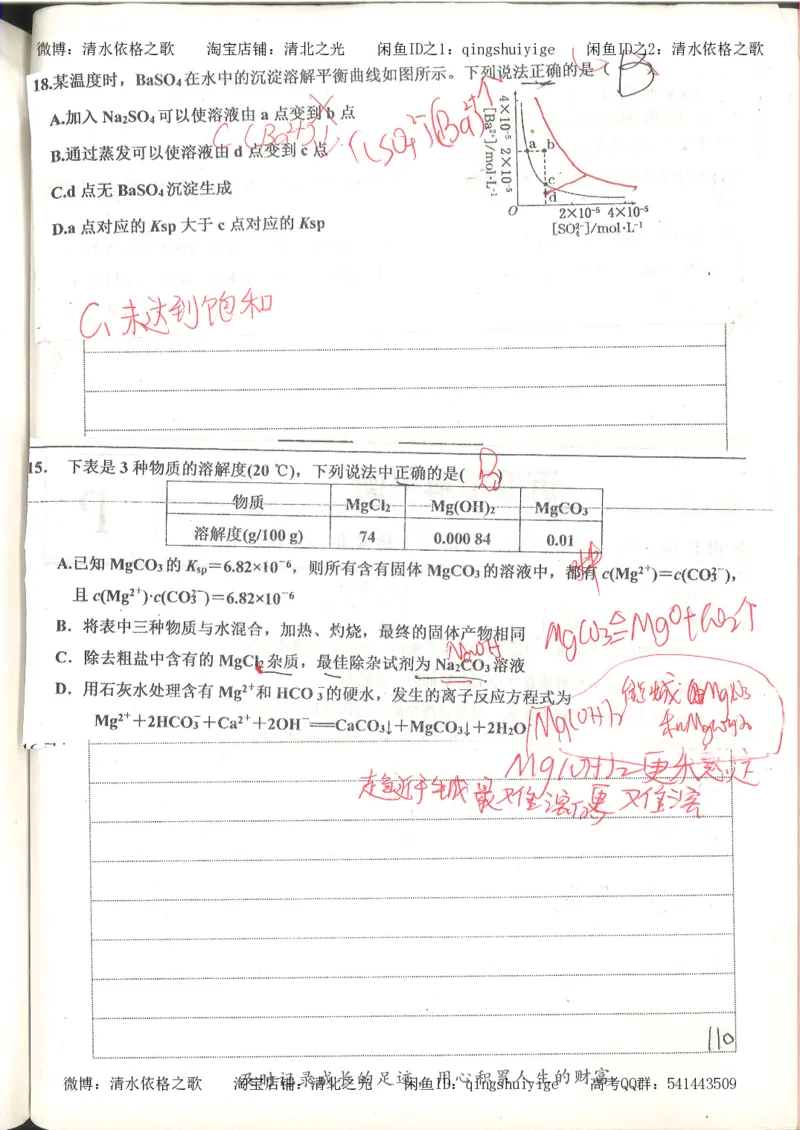 微博：清水依格之歌 淘宝店铺：清北之光 闲鱼ID之1：qingshuiyige 闲鱼ID之2：清水依格之歌
18.某温度时，BaSO₄在水中的沉淀溶解平衡曲线如图所示。下列说法正确的是（ B ）
A.加入 Na₂SO₄可以使溶液由 a 点变到 b 点
B.通过蒸发可以使溶液由 d 点变到 c 点
C.d 点无 BaSO₄沉淀生成
D.a 点对应的 Ksp 大于 c 点对应的 Ksp
[Ba²⁺]/mol·L⁻¹
4×10⁻⁵
2×10⁻⁵
a b
c
d
O
2×10⁻⁵ 4×10⁻⁵
[SO₄²⁻]/mol·L⁻¹
C、未达到饱和
15. 下表是 3 种物质的溶解度(20 ℃)，下列说法中正确的是( B )
物质 MgCl₂ Mg(OH)₂ MgCO₃
溶解度(g/100 g) 74 0.000 84 0.01
A.已知 MgCO₃的 Ksp＝6.82×10⁻⁶，则所有含有固体 MgCO₃的溶液中，都有 c(Mg²⁺)＝c(CO₃²⁻)，
且 c(Mg²⁺)·c(CO₃²⁻)＝6.82×10⁻⁶
B．将表中三种物质与水混合，加热、灼烧，最终的固体产物相同
MgCO₃ ≜ MgO+CO₂↑
NaOH
C．除去粗盐中含有的 MgCl₂杂质，最佳除杂试剂为 Na₂CO₃溶液
D．用石灰水处理含有 Mg²⁺和 HCO₃⁻的硬水，发生的离子反应方程式为
Mg²⁺＋2HCO₃⁻＋Ca²⁺＋2OH⁻══CaCO₃↓＋MgCO₃↓＋2H₂O
Mg(OH)₂
Mg(OH)₂更
难溶
110
及时记录成长的足迹 用心积累人生的财富
微博：清水依格之歌 淘宝店铺：清北之光 闲鱼ID：qingshuiyige 高考QQ群：541443509